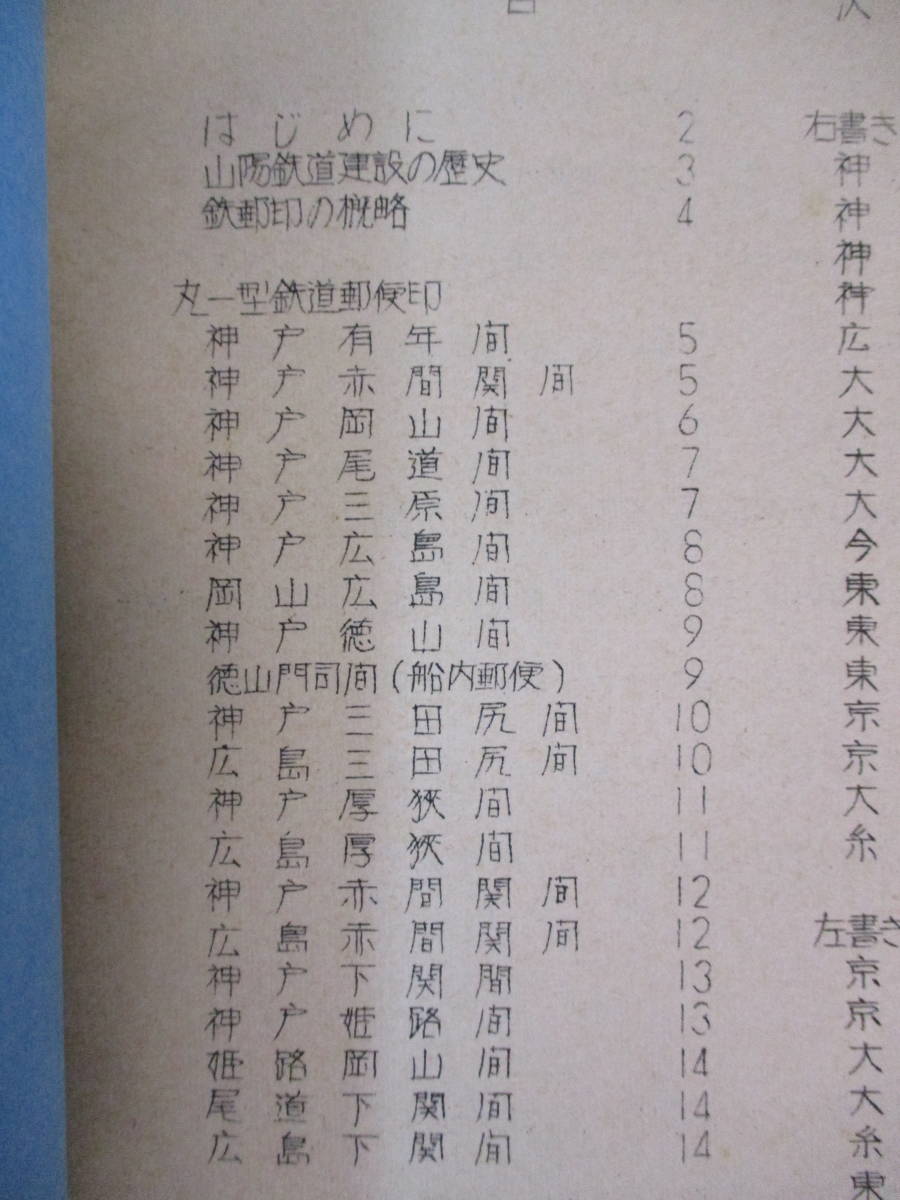 目 次
はじめに 2
山陽鉄道建設の歴史 3
鉄郵印の概略 4
丸一型鉄道郵便印
神戸有年間 5
神戸赤間関間 5
神戸岡山間 6
神戸尾道間 7
神戸三原間 7
神戸広島間 8
岡山広島間 8
神戸徳山間 9
徳山門司間(船内郵便) 9
神戸三田尻間 10
広島三田尻間 10
神戸厚狭間 11
広島厚狭間 11
神戸赤間関間 12
広島赤間関間 12
神戸下関間 13
神戸姫路間 13
姫路岡山間 14
尾道下関間 14
広島下関間 14
右書き
神
神
神
神
広
大
大
大
大
今
東
東
東
京
京
大
糸
左書き
京
京
大
大
糸
東